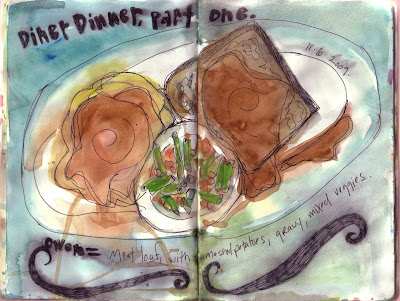 Diner Dinner, part one.
Meat loaf, with mashed potatoes, gravy, mixed veggies.